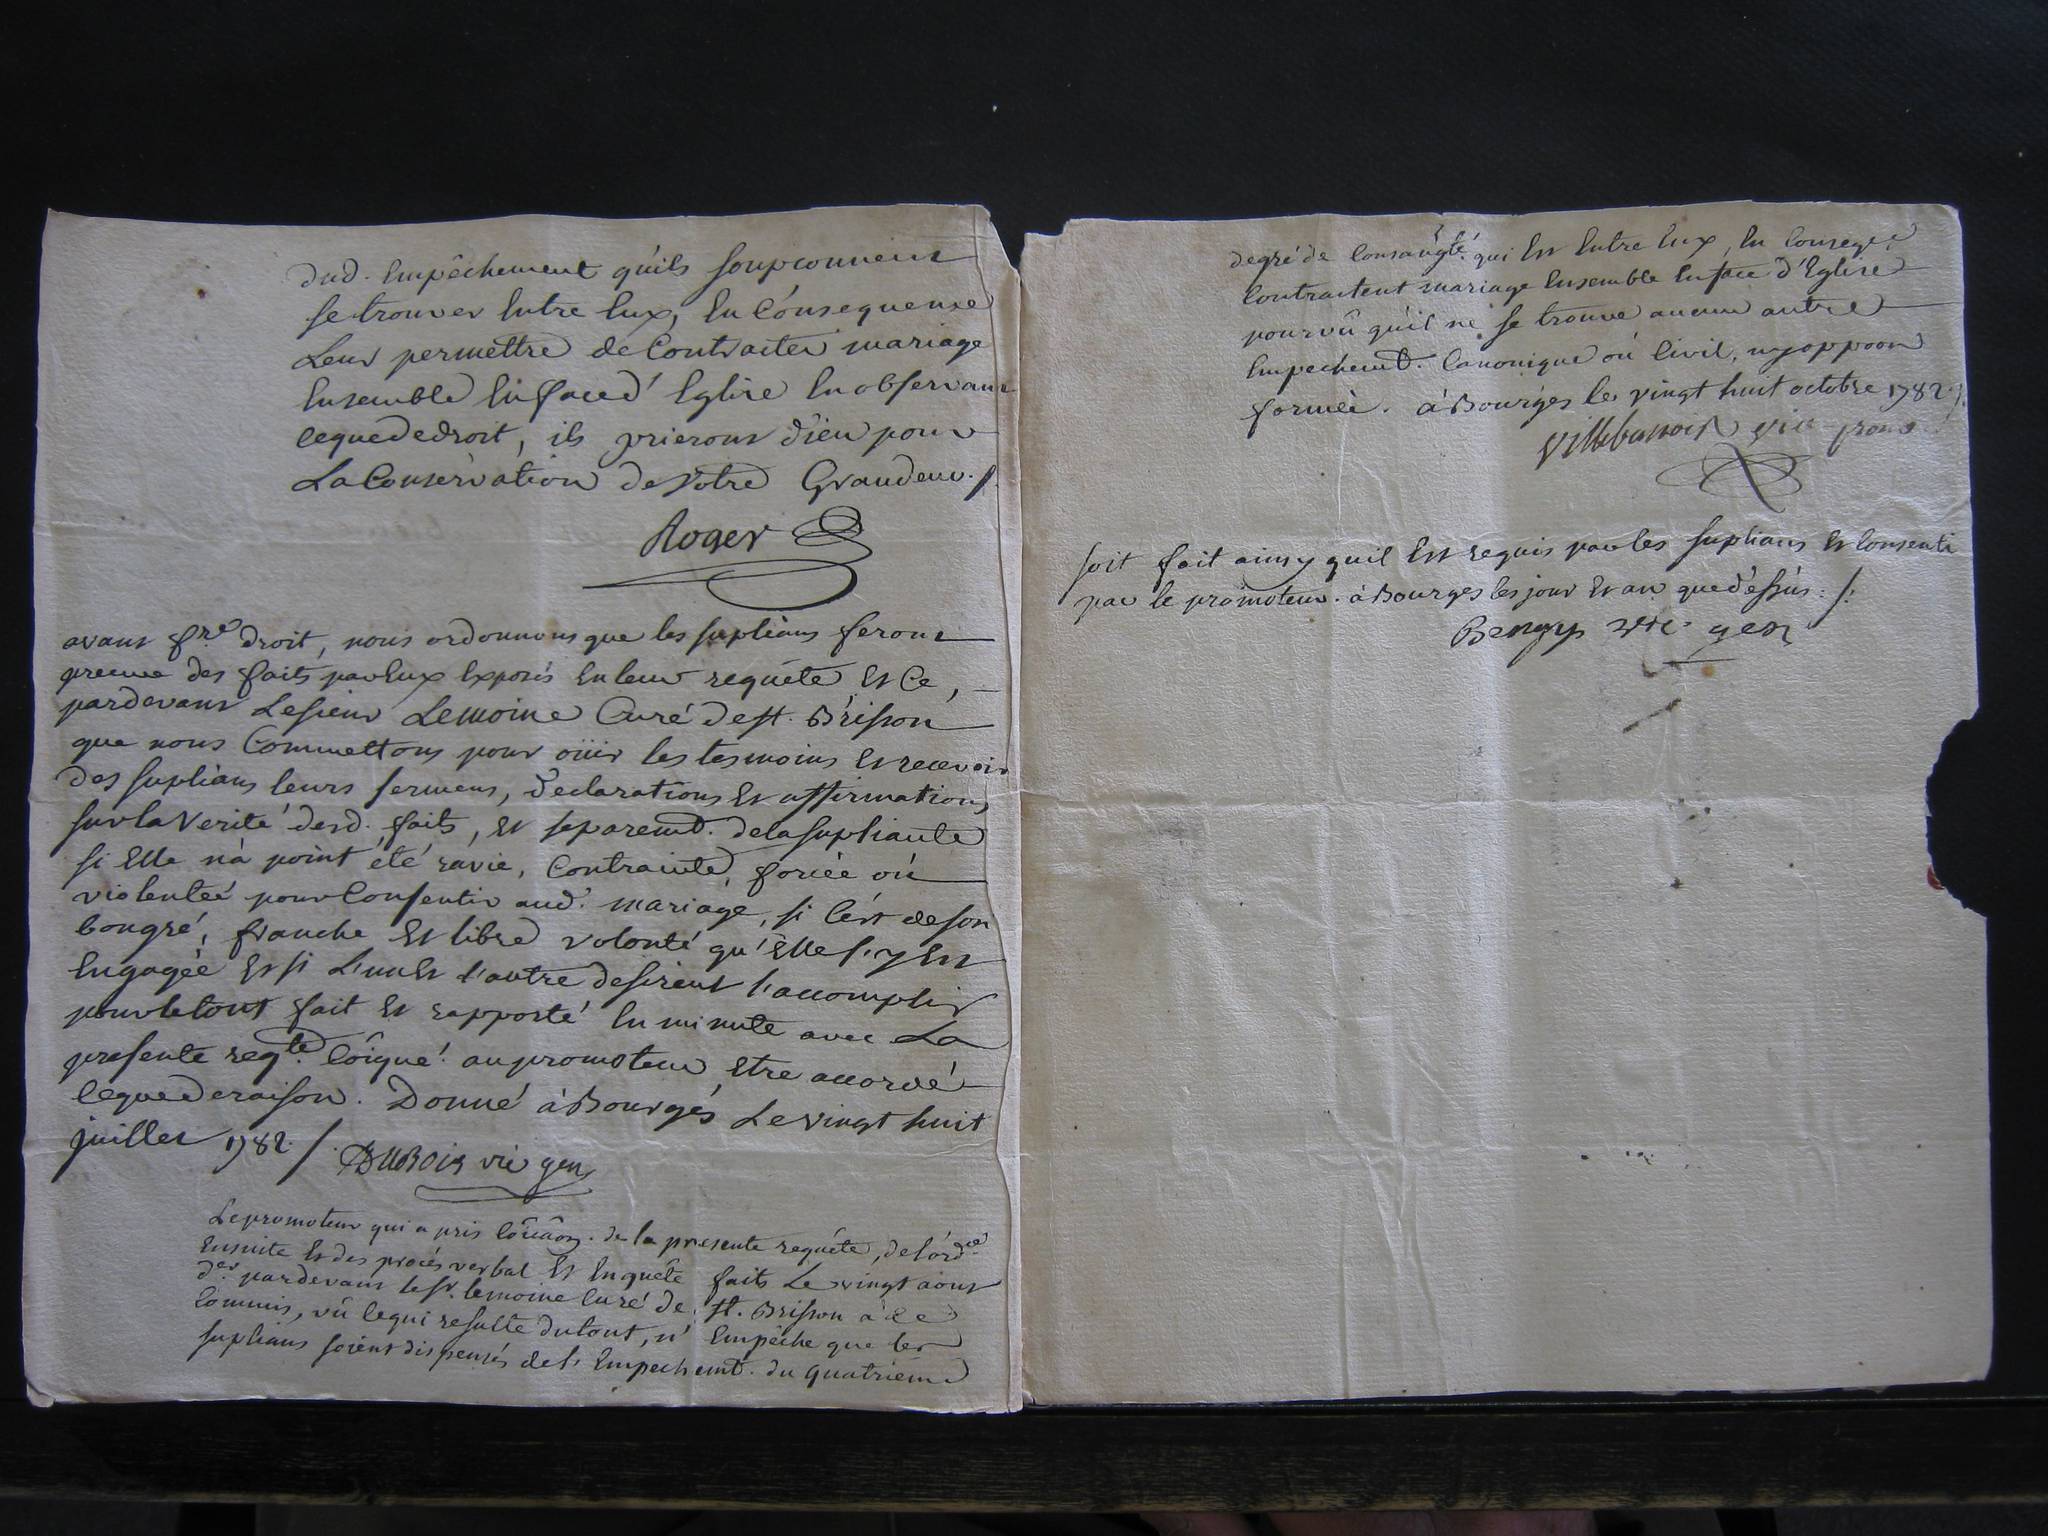 dud. Empêchement qu'ils soupconnent
se trouver Entre Eux, En Consequense
Leur permettre de Contracter mariage
Ensemble En face d'Eglise En observant
ceque de droit, ils prieront dieu pour
La Conservation de Votre Grandeur. /.
Roger
avant fre. droit, nous ordonnons que les suplians feront
preuve des faits par Eux Exposés En leur requête Et Ce,
pardevant Le sieur Lemoine Curé de st. Brisson
que nous Commettons pour oüir les tesmoins Et recevoir
des suplians leurs sermens, declarations Et affirmations
sur la Verité desd. faits, Et separemt. de la supliante
si Elle n'a point été ravie, Contrainte, forcée où
violentée pour Consentir aud. mariage, si C'est de son
bongré, franche Et libre volonté qu'Elle s'y Est
Engagée Et si L'un Et l'autre desirent l'accomplir
pour le tout fait Et rapporté En minute avec La
presente reqte. Côiqué. au promoteur Etre accordé
Ceque de raison. Donné à Bourges Le vingt huit
juillet 1782. /.
DUBOIS vic gen
Le promoteur qui a pris Côicâon. de la presente requête, de l'ordce.
Ensuite Et des procés verbal Et Enquête faits Le vingt aout
der. pardevant le sr. lemoine Curé de st. Brisson à ce
Commis, vû Cequi resulte du tout, n'Empêche que les
suplians soient dispensés de l'Empechemt. du quatrieme
degré de Consangté. qui Est Entre Eux, En Conseqce
Contractent mariage Ensemble En face d'Eglise
pourvû qu'il ne se trouve aucun autre
Empechemt. Canonique où Civil, ny oppoon
formée. à Bourges les vingt huit octobre 1782 /.
Villebanois vice prom
soit fait ainsy quil Est requis par les suplians Et Consenti
par le promoteur. à Bourges les jour Et an que dessus : /.
Bengy vic. gen